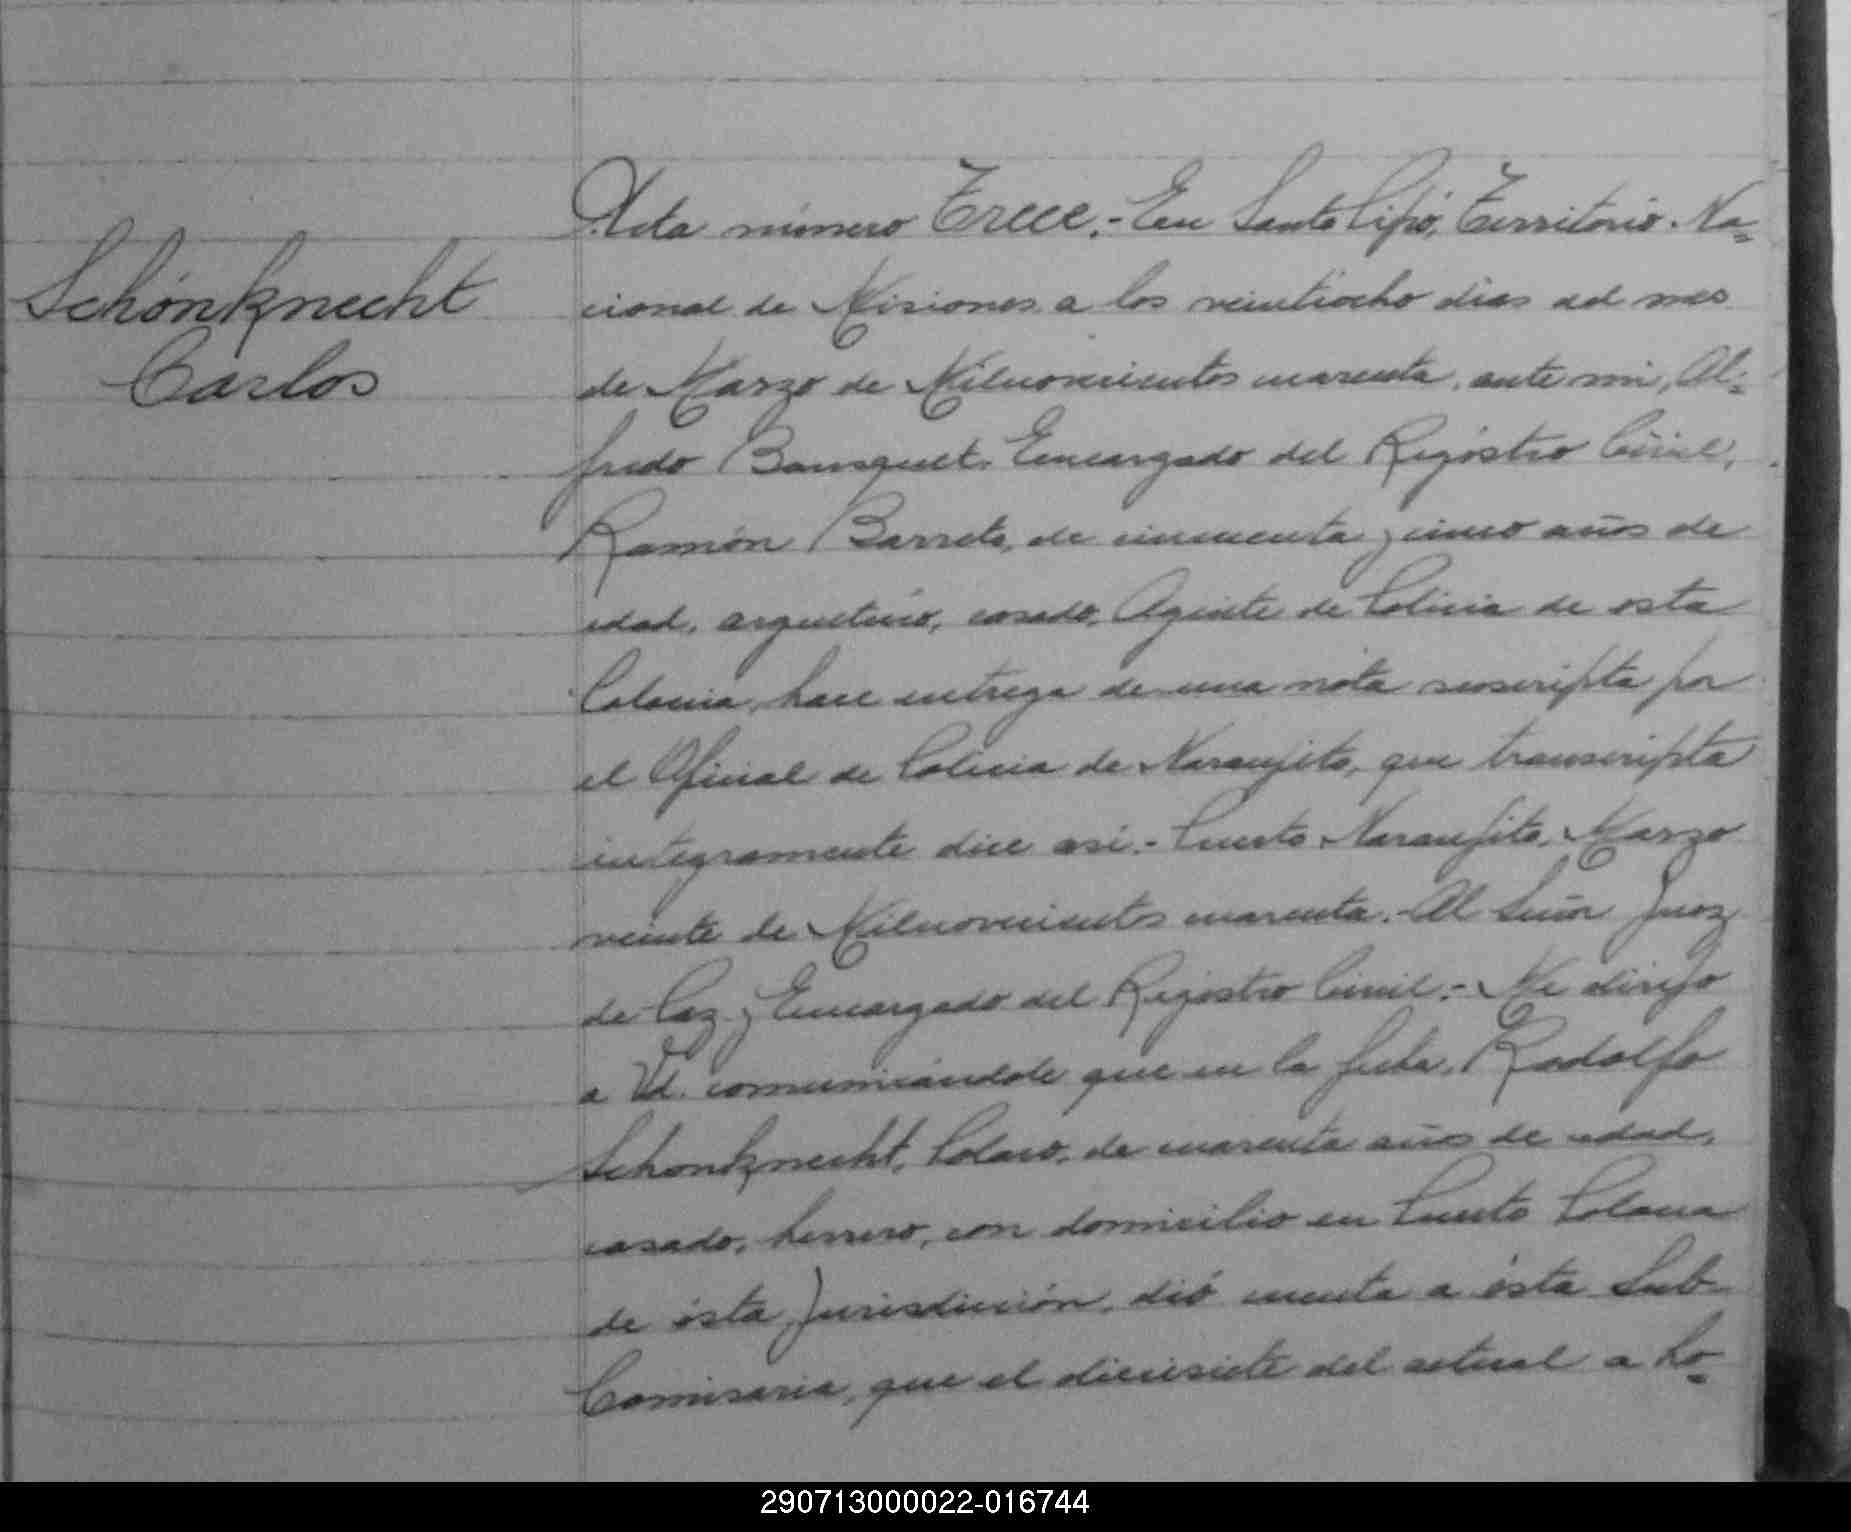 Schönknecht
Carlos
Acta número Trece.- En Santo Pipó, Territorio Na=
cional de Misiones a los veintiocho dias del mes
de Marzo de Milnovecientos cuarenta, ante mi, Al=
fredo Bousquet, Encargado del Registro Civil,
Ramón Barreto, de cincuenta y cinco años de
edad, argentino, casado, Agente de Policia de esta
Colonia, hace entrega de una nota suscripta por
el Oficial de Policia de Naranjito, que transcripta
integramente dice asi.- Puerto Naranjito, Marzo
veinte de Milnovecientos cuarenta.- Al Señor Juez
de Paz y Encargado del Registro Civil.- Me dirijo
a Vd. comunicándole que en la fecha, Rodolfo
Schonknecht, Polaco, de cuarenta años de edad,
casado, herrero, con domicilio en Puerto Polana
de ésta Jurisdicción, dió cuenta a ésta Sub-
Comisaria, que el diecisiete del actual a ho=
290713000022-016744